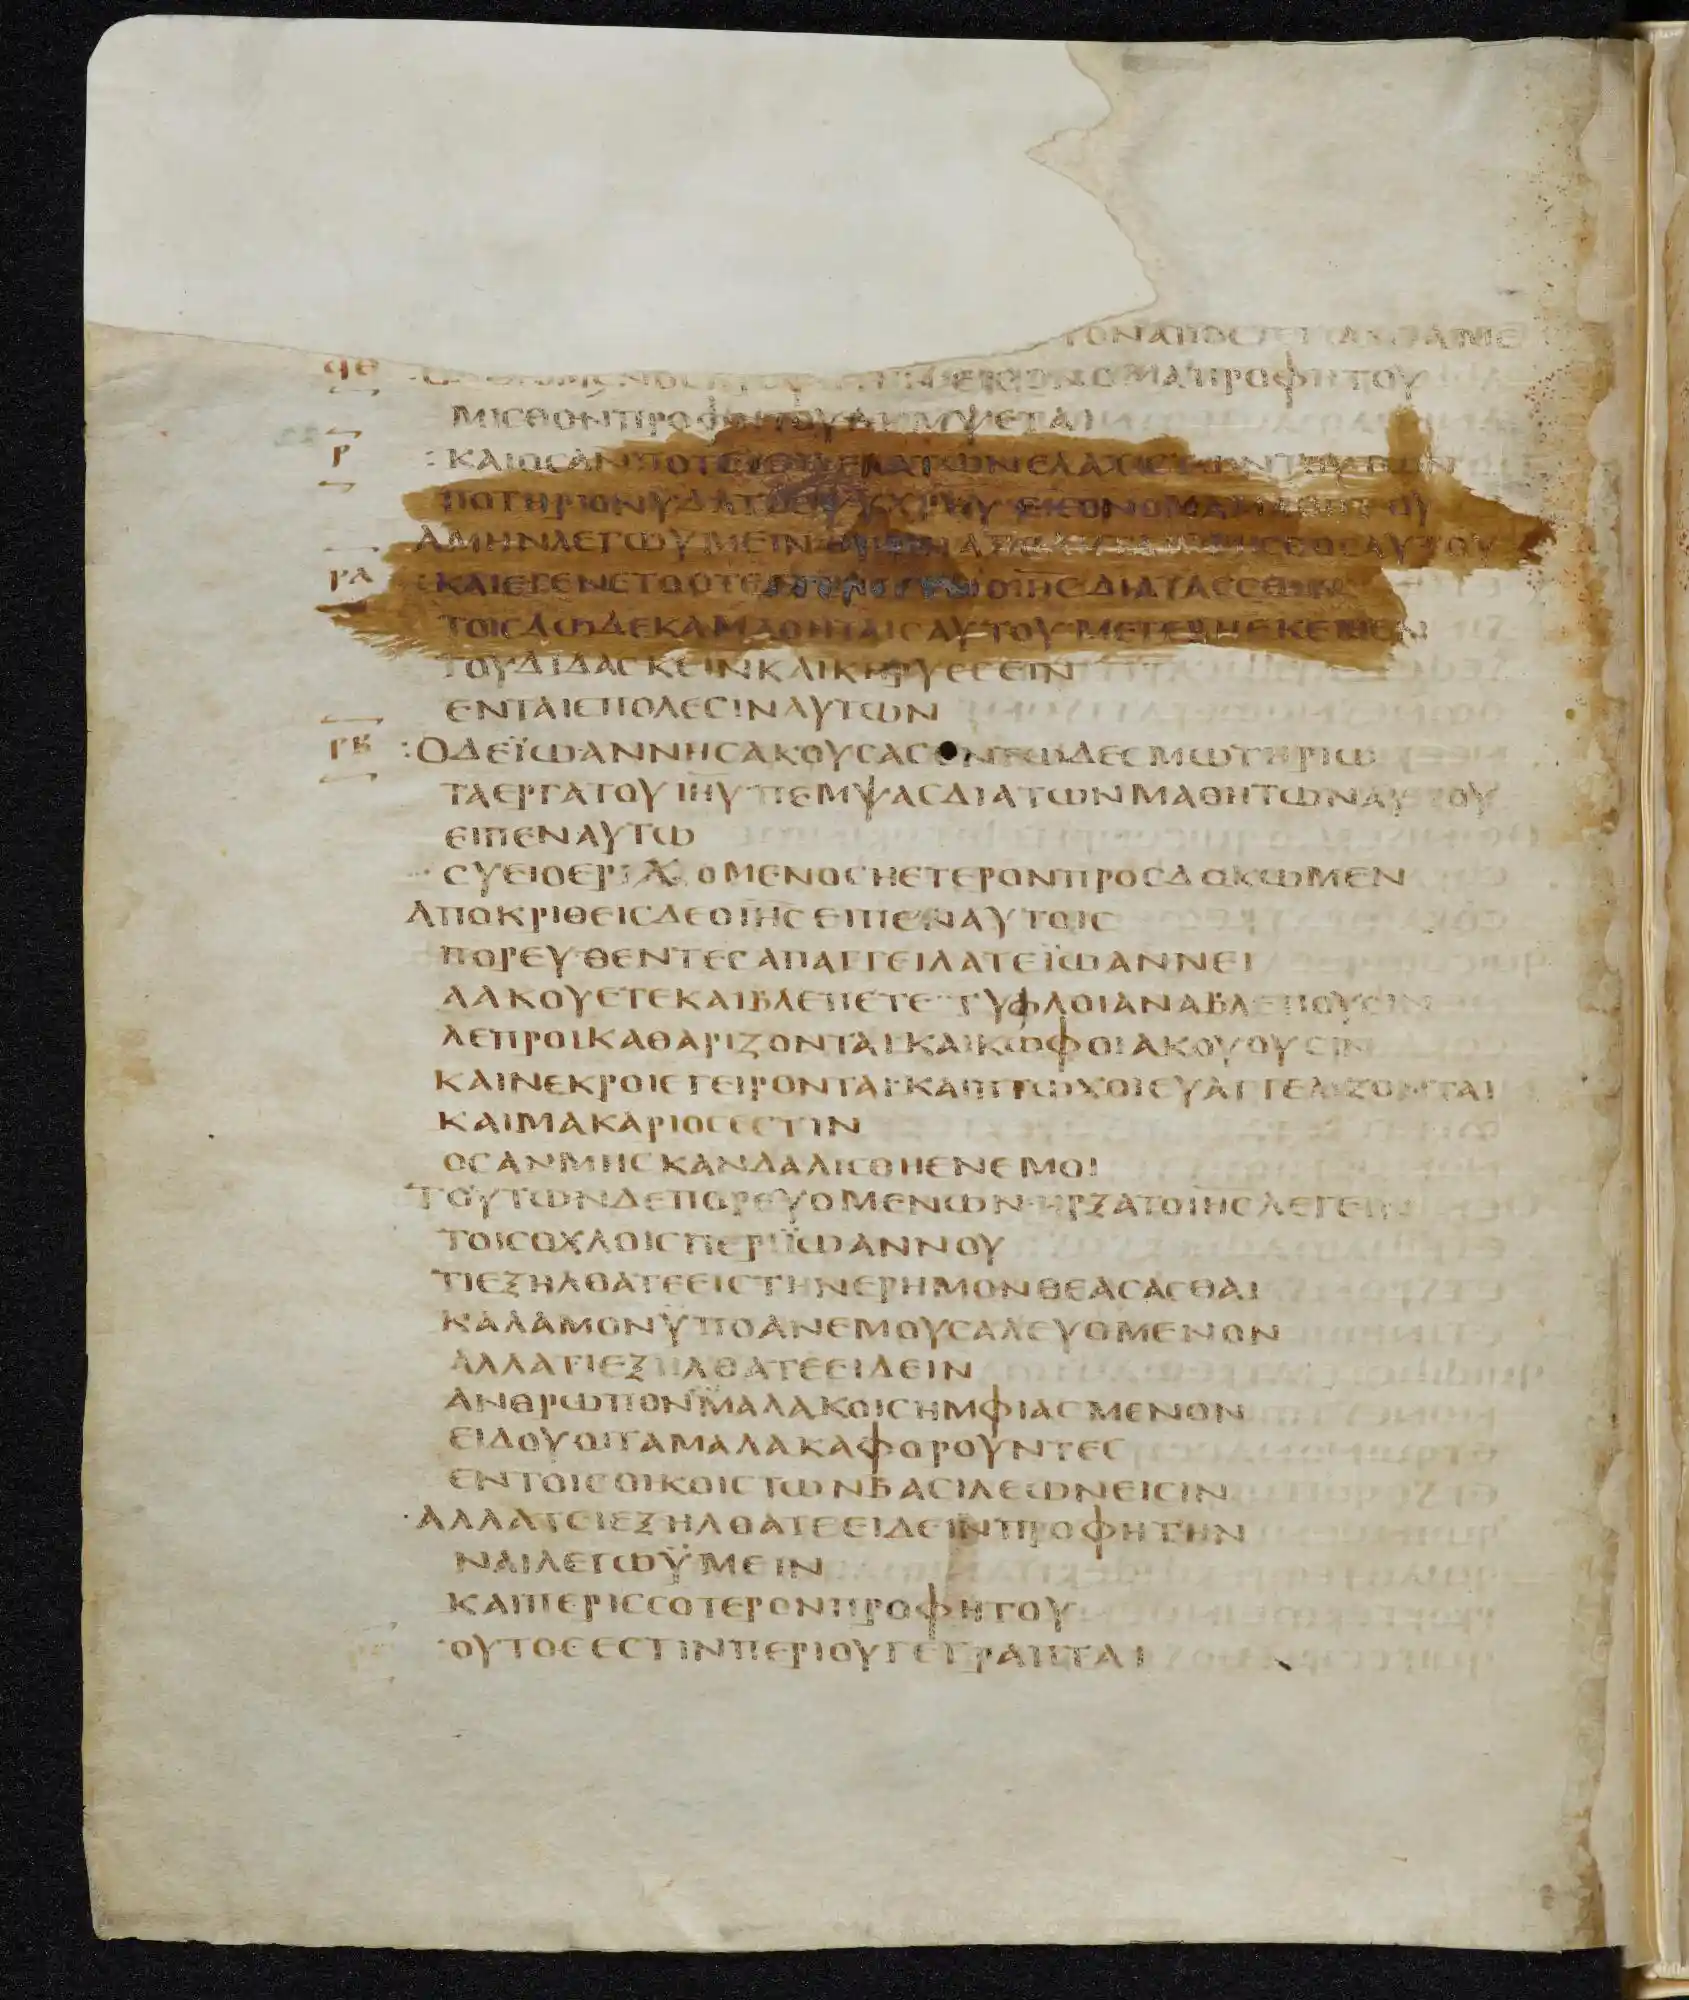 ΤΟΝΑΠΟΣΤΕΙΛΑΝΤΑΜΕ
ϥΘ ΜΑΠΡΟΦΗΤΟΥ
ΜΙCΘΟΝΠΡΟΦΗΤΟΥΛΗΜΨΕΤΑΙ
Ρ :ΚΑΙΟCΑΝΠΟΤΕΙCΗ ΕΝΑΤΩΝΕΛΑΧΙCΤΩΝΤΟΥΤΩΝ
ΠΟΤΗΡΙΟΝΥΔΑΤΟC ΨΥΧΡΟΥ ΕΙCΟΝΟΜΑΜΑΘΗΤΟΥ
ΑΜΗΝΛΕΓΩΥΜΕΙΝ ΟΥΜΗΑΠΟΛΗΤΑΙ CΘΟCΑΥΤΟΥ
ΡΑ :ΚΑΙΕΓΕΝΕΤΟΟΤΕΕΤΕΛΕCΕΝΟΙΗC ΔΙΑΤΑCCΩΝ
ΤΟΙCΔΩΔΕΚΑΜΑΘΗΤΑΙCΑΥΤΟΥ ΜΕΤΕΒΗΕΚΕΙΘΕΝ
ΤΟΥΔΙΔΑCΚΕΙΝΚΑΙΚΗΡΥCCΕΙΝ
ΕΝΤΑΙCΠΟΛΕCΙΝΑΥΤΩΝ
ΡΒ :ΟΔΕΪΩΑΝΝΗCΑΚΟΥCΑCΕΝΤΩΔΕCΜΩΤΗΡΙΩ
ΤΑΕΡΓΑΤΟΥΙΗΥ ΠΕΜΨΑCΔΙΑΤΩΝΜΑΘΗΤΩΝΑΥΤΟΥ
ΕΙΠΕΝΑΥΤΩ
CΥΕΙΟΕΡΧΟΜΕΝΟCΗΕΤΕΡΟΝΠΡΟCΔΟΚΩΜΕΝ
ΑΠΟΚΡΙΘΕΙCΔΕΟΙΗC ΕΙΠΕΝΑΥΤΟΙC
ΠΟΡΕΥΘΕΝΤΕCΑΠΑΓΓΕΙΛΑΤΕΪΩΑΝΝΕΙ
ΑΑΚΟΥΕΤΕΚΑΙΒΛΕΠΕΤΕ ΤΥΦΛΟΙΑΝΑΒΛΕΠΟΥCΙΝ
ΛΕΠΡΟΙΚΑΘΑΡΙΖΟΝΤΑΙ ΚΑΙΚΩΦΟΙΑΚΟΥΟΥCΙΝ
ΚΑΙΝΕΚΡΟΙΕΓΕΙΡΟΝΤΑΙ ΚΑΙΠΤΩΧΟΙΕΥΑΓΓΕΛΙΖΟΝΤΑΙ
ΚΑΙΜΑΚΑΡΙΟCΕCΤΙΝ
ΟCΑΝΜΗCΚΑΝΔΑΛΙCΘΗΕΝΕΜΟΙ
ΤΟΥΤΩΝΔΕΠΟΡΕΥΟΜΕΝΩΝ ΗΡΞΑΤΟΙΗC ΛΕΓΕΙΝ
ΤΟΙCΟΧΛΟΙCΠΕΡΙΪΩΑΝΝΟΥ
ΤΙΕΞΗΛΘΑΤΕΕΙCΤΗΝΕΡΗΜΟΝΘΕΑCΑCΘΑΙ
ΚΑΛΑΜΟΝΥΠΟΑΝΕΜΟΥCΑΛΕΥΟΜΕΝΟΝ
ΑΛΛΑΤΙΕΞΗΛΘΑΤΕΕΙΔΕΙΝ
ΑΝΘΡΩΠΟΝΜΑΛΑΚΟΙCΗΜΦΙΑCΜΕΝΟΝ
ΕΙΔΟΥΟΙΤΑΜΑΛΑΚΑΦΟΡΟΥΝΤΕC
ΕΝΤΟΙCΟΙΚΟΙCΤΩΝΒΑCΙΛΕΩΝΕΙCΙΝ
·ΑΛΛΑΤΕΙΕΞΗΛΘΑΤΕΕΙΔΕΙΝΠΡΟΦΗΤΗΝ
ΝΑΙΛΕΓΩΫΜΕΙΝ
ΚΑΙΠΕΡΙCCΟΤΕΡΟΝΠΡΟΦΗΤΟΥ
·ΟΥΤΟCΕCΤΙΝΠΕΡΙΟΥΓΕΓΡΑΠΤΑΙ